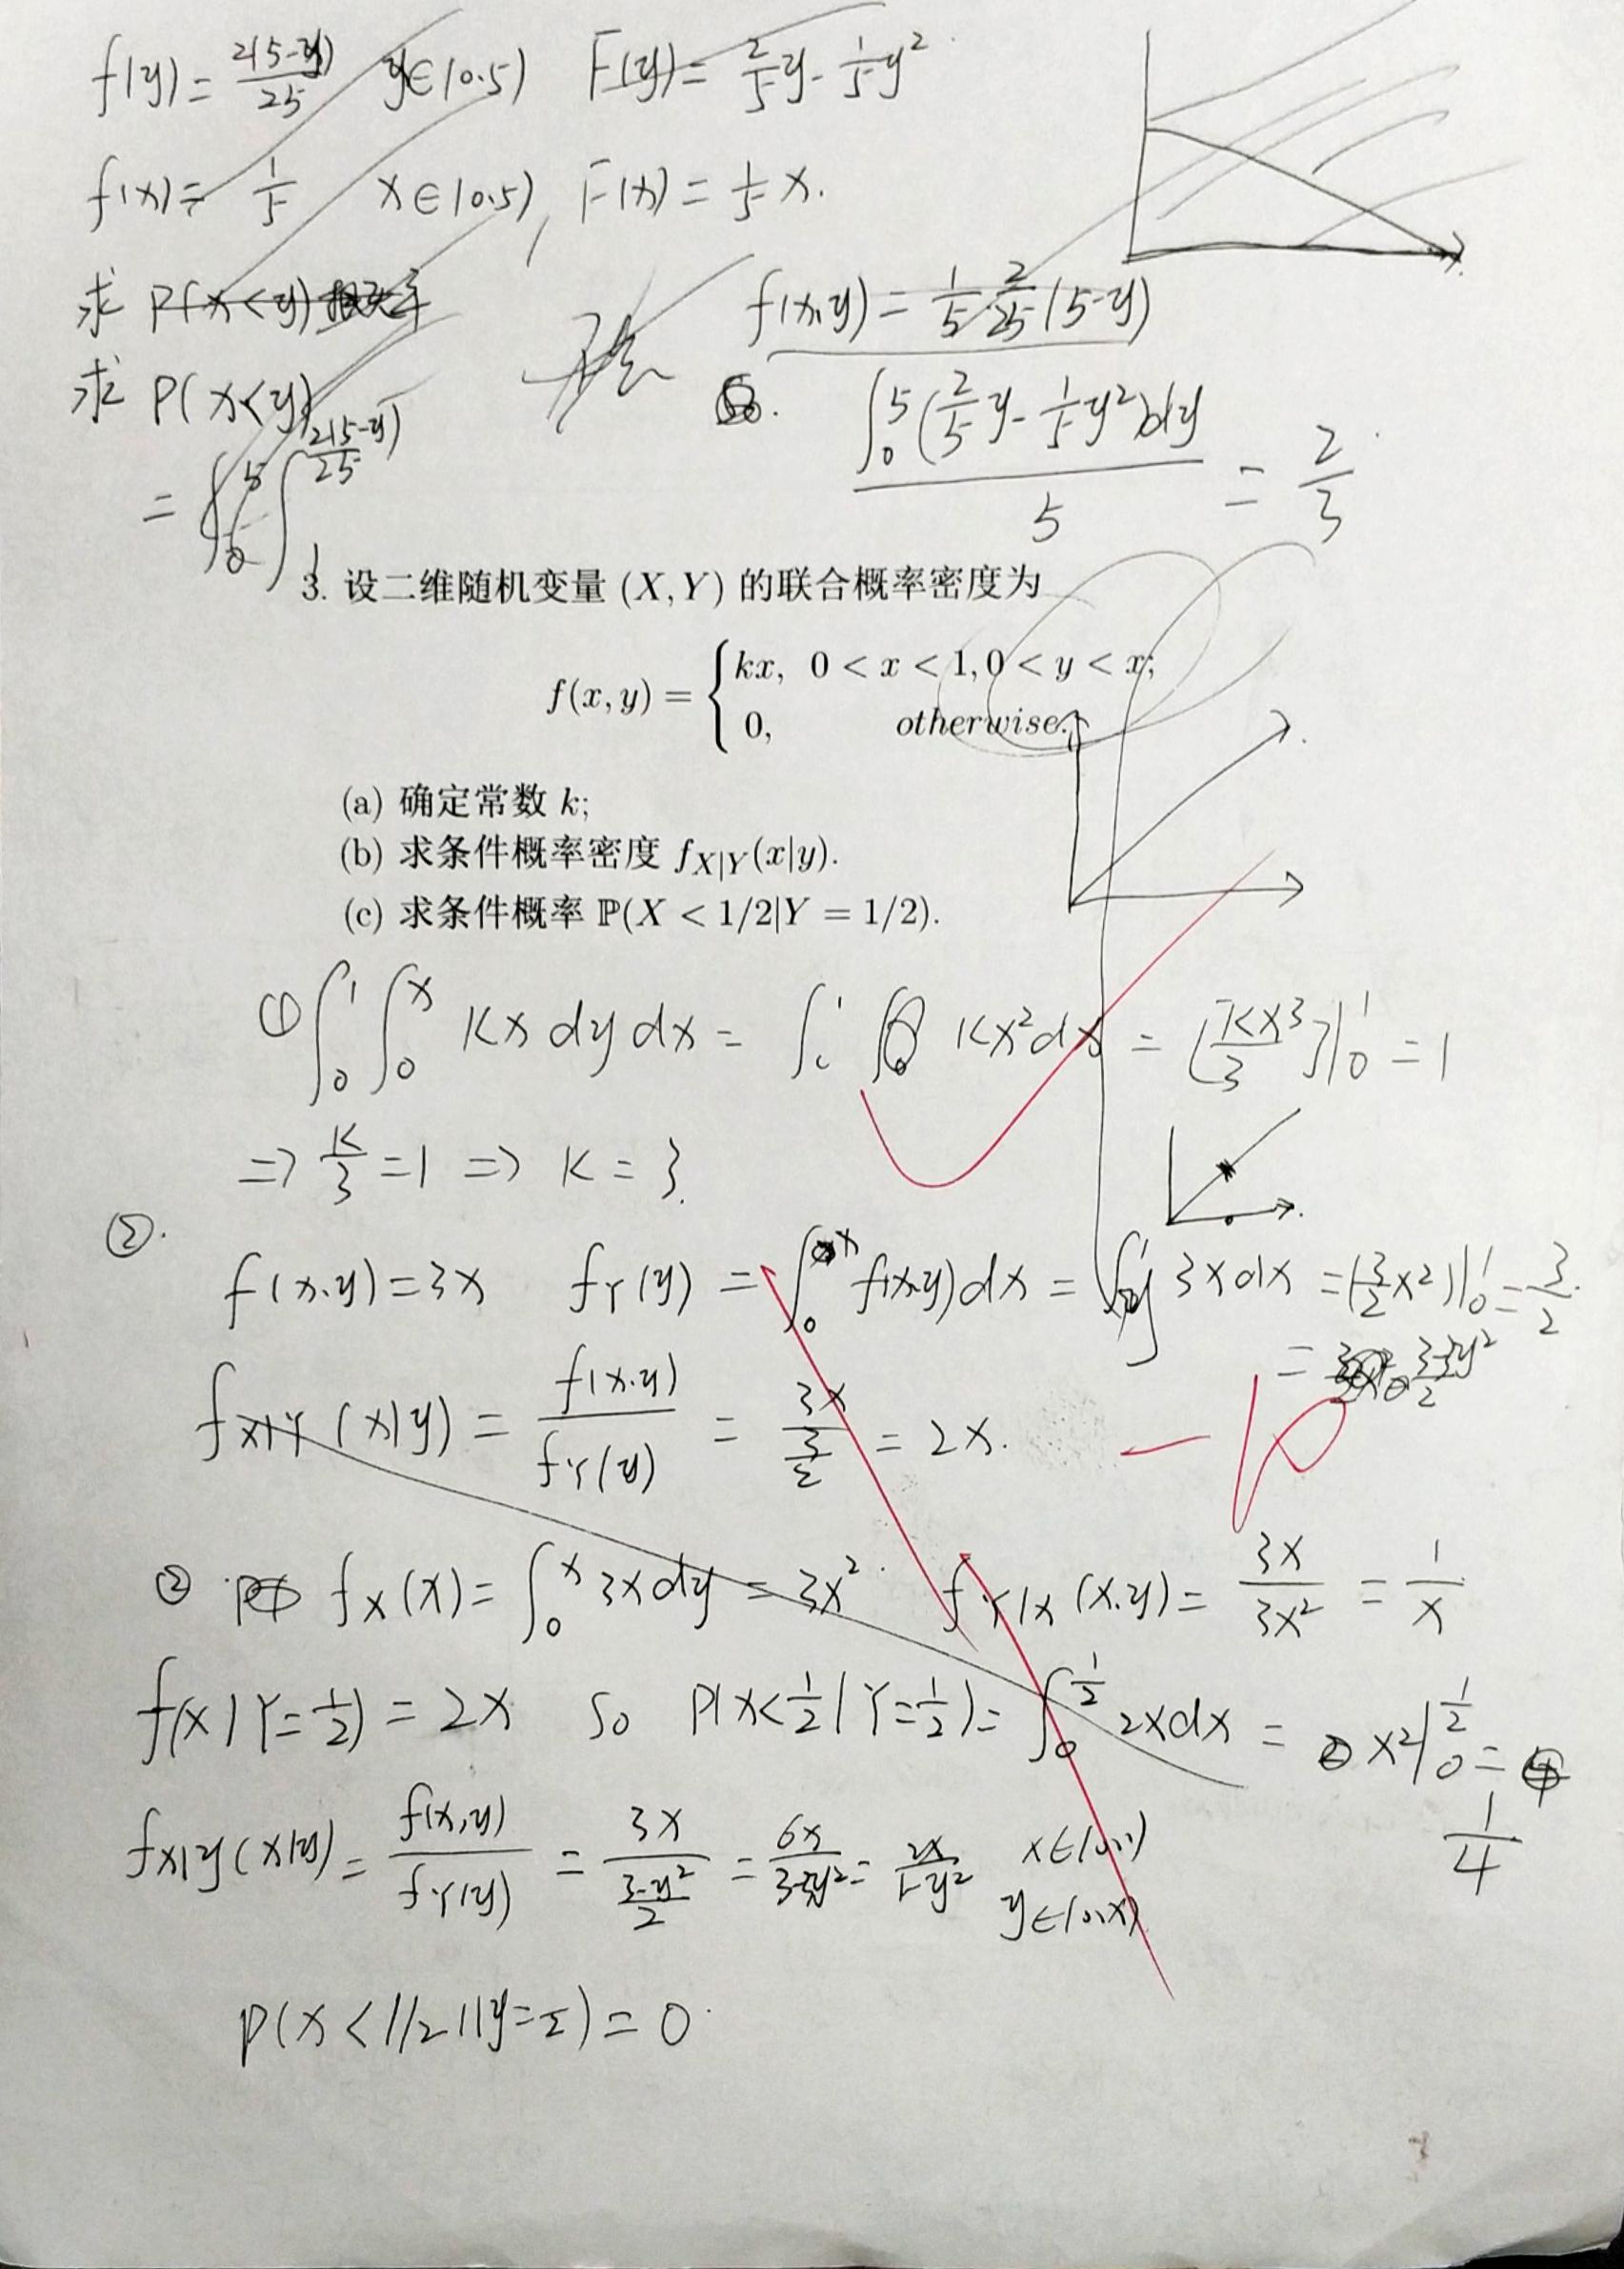 f(y) = 2(5-y)/25 y∈(0.5) F(y) = 2/5 y - 1/5 y²
f(x) = 1/5 x∈(0.5), F(x) = 1/5 x.
求 P(x<y)
f(x,y) = 1/5 · 2/25 (5-y)
求 P(x<y)
= ∫₀⁵ ∫ 2(5-y)/25
∫₀⁵ (2/5 y - 1/5 y²) dy / 5 = 2/3
3. 设二维随机变量 (X, Y) 的联合概率密度为
f(x, y) = { kx, 0 < x < 1, 0 < y < x;
0, otherwise.
(a) 确定常数 k;
(b) 求条件概率密度 f_{X|Y}(x|y).
(c) 求条件概率 ℙ(X < 1/2|Y = 1/2).
① ∫₀¹ ∫₀ˣ Kx dy dx = ∫₀¹ Kx² dx = [Kx³/3]|₀¹ = 1
=> K/3 = 1 => K = 3.
②.
f(x.y) = 3x f_Y(y) = ∫₀ˣ f(x,y) dx = ∫_y¹ 3x dx = (3/2 x²)|₀¹ = 3/2.
= (3-3y²)/2
f_{X|Y}(x|y) = f(x.y)/f_Y(y) = 3x/(3/2) = 2x.
-10
② f_X(x) = ∫₀ˣ 3x dy = 3x² f_{Y|X}(x.y) = 3x/3x² = 1/x
f(x|Y=1/2) = 2x so P(x<1/2|Y=1/2) = ∫₀^{1/2} 2x dx = x²|₀^{1/2} =
1/4
f_{x|y}(x|y) = f(x,y)/f_Y(y) = 3x/((3-y²)/2) = 6x/(3-3y²) = 2x/(1-y²) x∈(0,1)
y∈(0,x)
P(x<1/2|y=½) = 0.